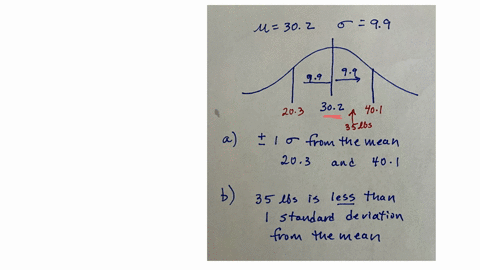 μ = 30.2 σ = 9.9
9.9 9.9
20.3 30.2 40.1
35 lbs
a) ± 1 σ from the mean
20.3 and 40.1
b) 35 lbs is less than
1 standard deviation
from the mean